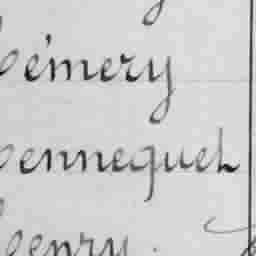 Hémery
Hennequet
Henry